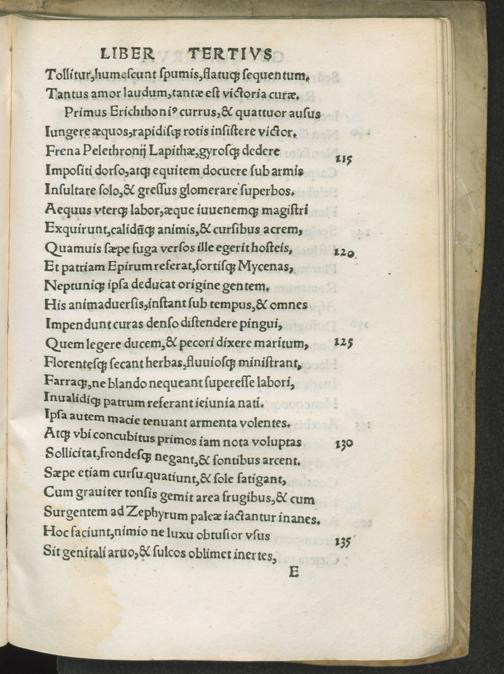 LIBER TERTIVS
Tollitur, humescunt spumis, flatuq; sequentum.
Tantus amor laudum, tantæ est victoria curæ.
Primus Erichthoniꝰ currus, & quattuor ausus
Iungere æquos, rapidisq; rotis insistere victor.
Frena Pelethronij Lapithæ, gyrosq; dedere 115
Impositi dorso, atq; equitem docuere sub armis
Insultare solo, & gressus glomerare superbos.
Aequus vterq; labor, æque iuuenemq; magistri
Exquirunt, calidūq; animis, & cursibus acrem,
Quamuis sæpe fuga versos ille egerit hosteis, 120
Et patriam Epirum referat, fortisq; Mycenas,
Neptuniq; ipsa deducat origine gentem.
His animaduersis, instant sub tempus, & omnes
Impendunt curas denso distendere pingui,
Quem legere ducem, & pecori dixere maritum, 125
Florentesq; secant herbas, fluuiosq; ministrant,
Farraq;, ne blando nequeant superesse labori,
Inualidiq; patrum referant ieiunia nati.
Ipsa autem macie tenuant armenta volentes.
Atq; vbi concubitus primos iam nota voluptas 130
Sollicitat, frondesq; negant, & fontibus arcent.
Sæpe etiam cursu quatiunt, & sole fatigant,
Cum grauiter tonsis gemit area frugibus, & cum
Surgentem ad Zephyrum paleæ iactantur inanes.
Hoc faciunt, nimio ne luxu obtusior vsus 135
Sit genitali aruo, & sulcos oblimet inertes,
E